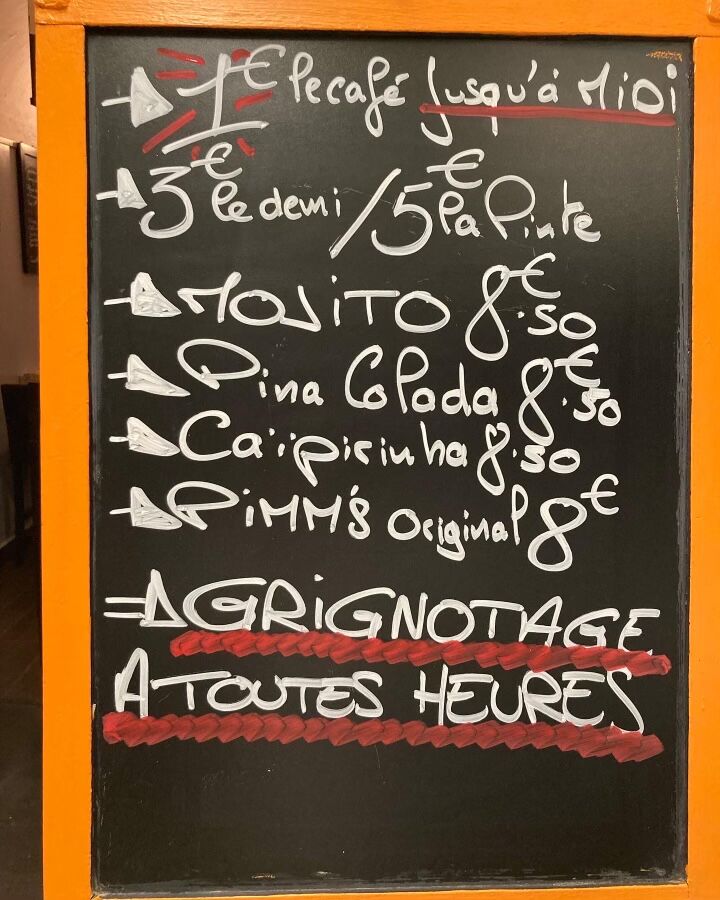 1€ le café jusqu'à MiDi
3€ le demi / 5€ la Pinte
MOJiTO 8€.50
Pina Colada 8€.50
Caïpirinha 8.50
PiMM'S Original 8€
GRiGNOTAGE
A TOUTES HEURES